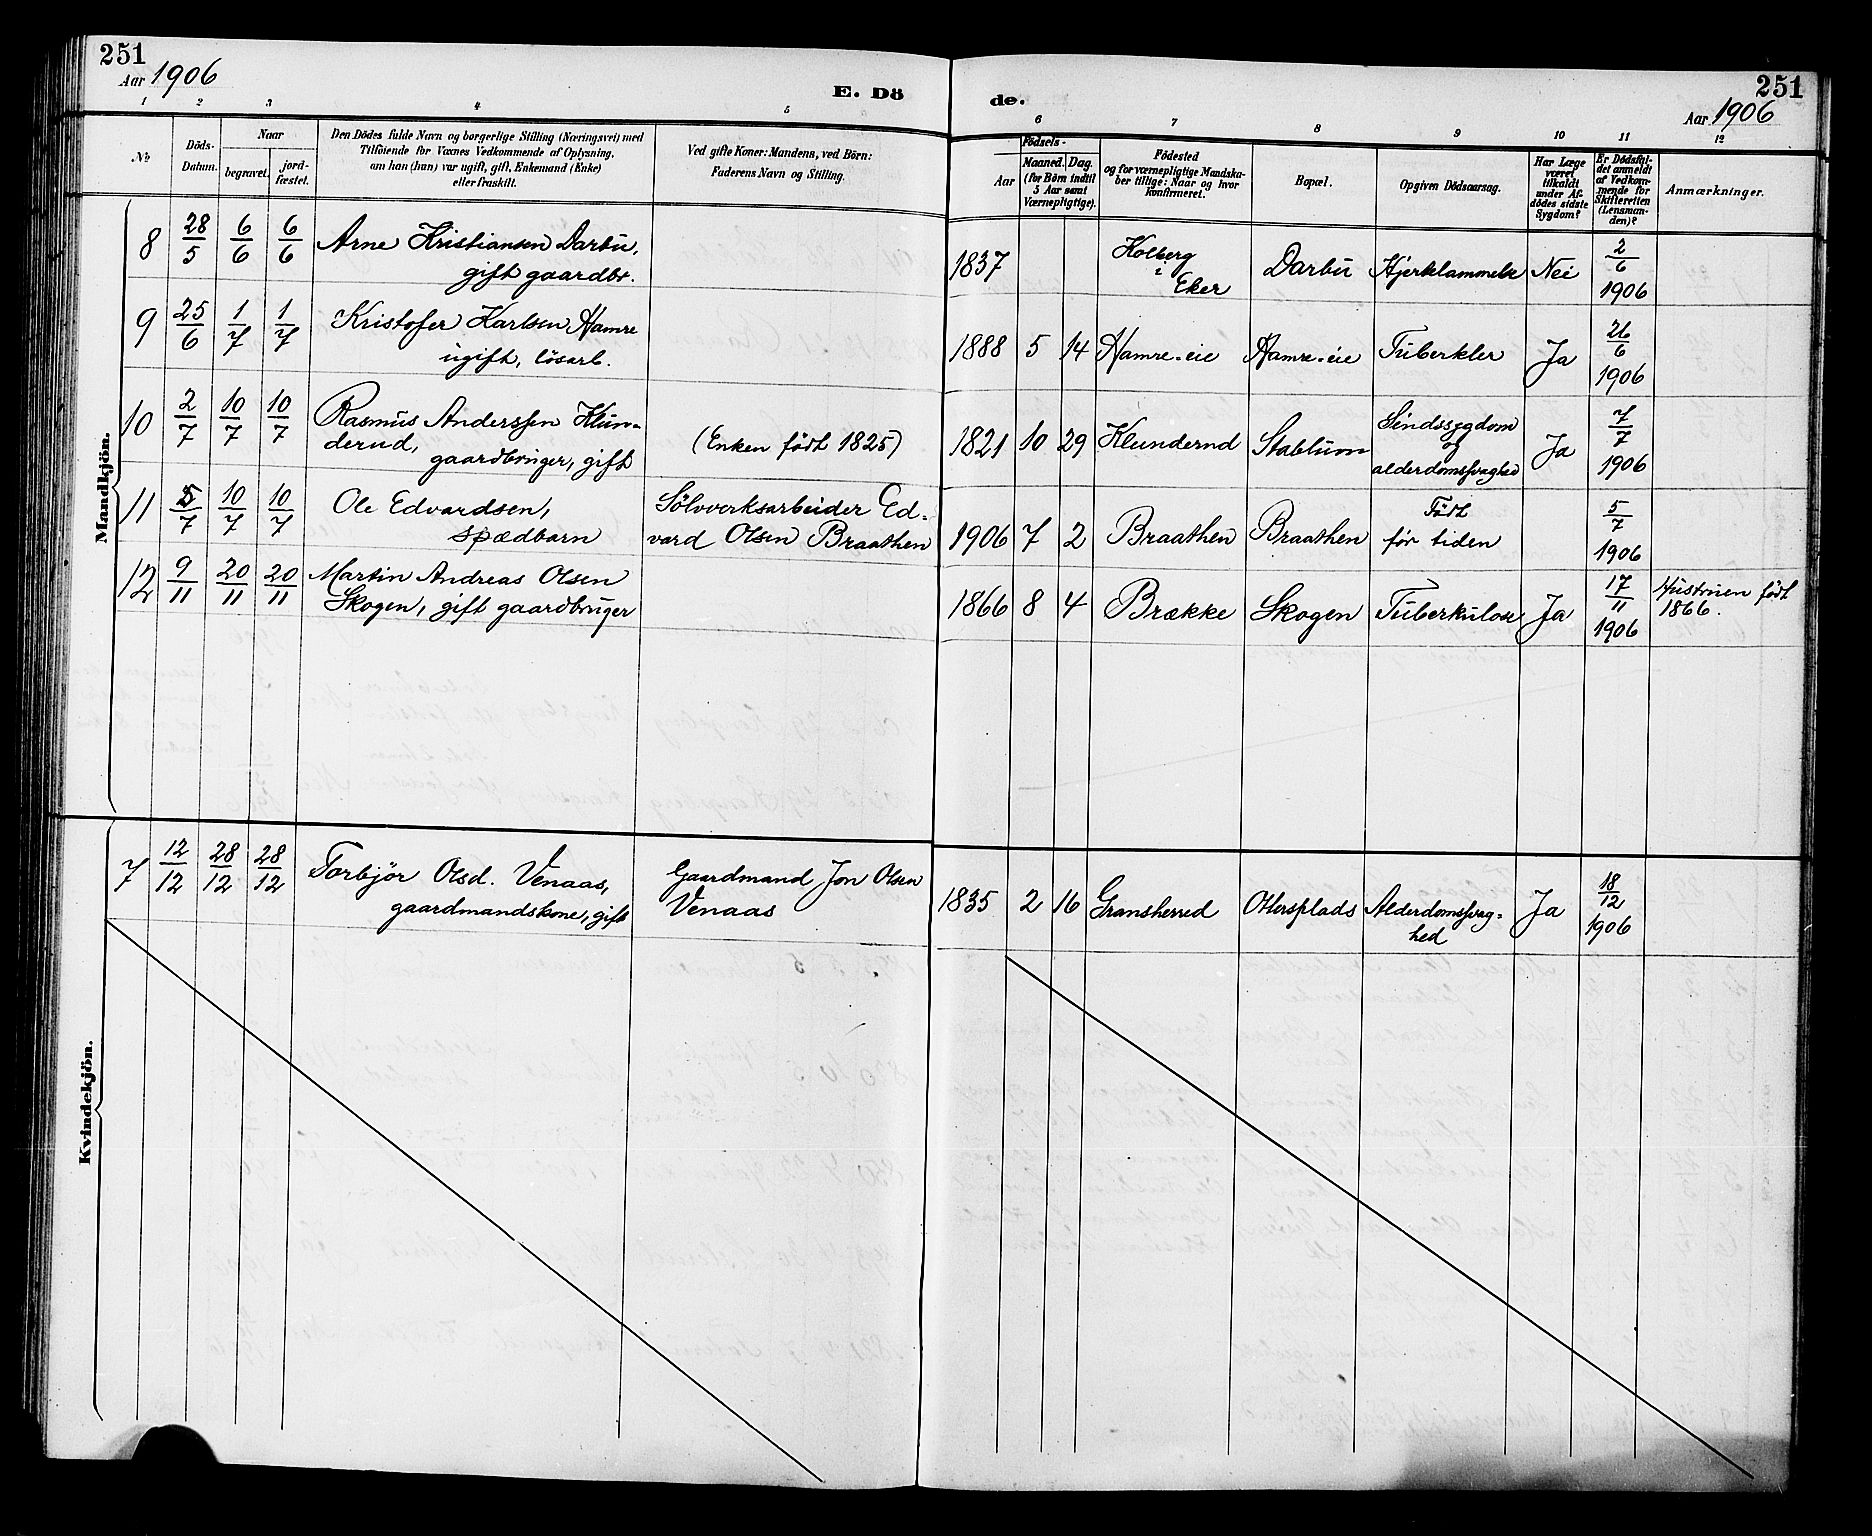 251
Aar 1906
E. Dö
1 2 3 4 5
No
Döds-
Datum.
Naar
begravet.
jord-
fæstet.
Den Dödes fulde Navn og borgerlige Stilling (Næringsvei) med
Tilföiende for Voxnes Vedkommende af Oplysning,
om han (hun) var ugift, gift, Enkemand (Enke)
eller fraskilt.
Ved gifte Koner: Mandens, ved Börn:
Faderens Navn og Stilling.
Mandkjön.
8 28/5 6/6 6/6 Arne Kristiansen Darbu,
gift gaardbr.
9 25/6 1/7 1/7 Kristofer Karlsen Hamre
ugift, lösarb.
10 2/7 10/7 10/7 Rasmus Anderssen Klun-
derud, gaardbruger, gift
(Enken födt 1825)
11 5/7 10/7 10/7 Ole Edvardsen,
spædbarn
Sölvverksarbeider Ed-
vard Olsen Braathen
12 9/11 20/11 20/11 Martin Andreas Olsen
Skogen, gift gaardbruger
Kvindekjön.
7 12/12 28/12 28/12 Torbjör Olsd. Venaas,
gaardmandskone, gift
Gaardmand Jon Olsen
Venaas
de.
251
Aar 1906
6 7 8 9 10 11 12
Födsels-
Aar
Maaned. Dag.
(for Börn indtil
5 Aar samt
Værnepligtige).
Födested
og for værnepligtige Mandska-
ber tillige: Naar og hvor
konfirmeret.
Bopæl.
Opgiven Dödsaarsag.
Har Læge
været
tilkaldt
under Af-
dödes sidste
Sygdom?
Er Dödsfal-
det anmeldt
af Vedkom-
mende for
Skifteretten
(Lensman-
den)?
Anmærkninger.
1837 Kolberg
i
Eker
Darbu Hjerklammelse Nei 2/6
1906
1888 5 14 Hamre-eie Hamre-eie Tuberkler Ja 26/6
1906
1821 10 29 Klunderud Stablum Sindssygdom
og
alderdomssvaghed
Ja 7/7
1906
1906 7 2 Braathen Braathen Födt
för tiden
5/7
1906
1866 8 4 Brække Skogen Tuberkulose Ja 17/11
1906
Hustruen födt
1866.
1835 2 16 Gransherred Ottersplads Alderdomssvag-
hed
Ja 18/12
1906